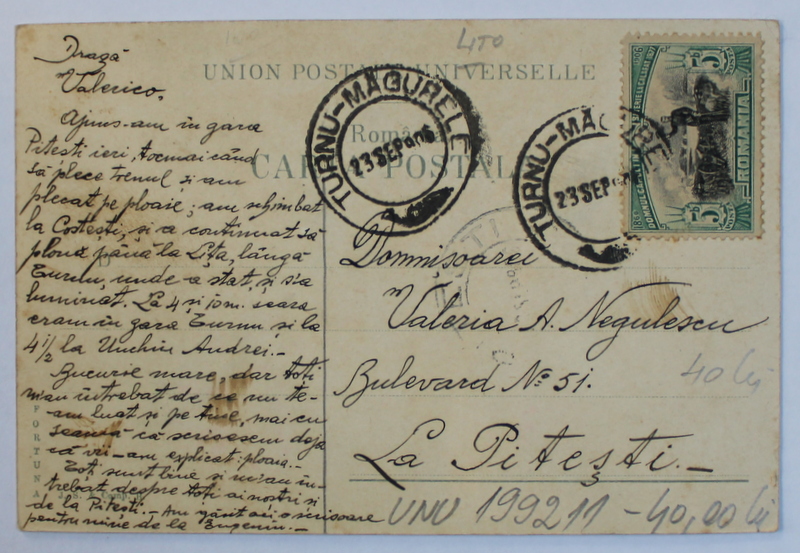 Dragă
Valerico,
Ajuns-am în gara
Pitești ieri, tocmai când
să plece trenul și am
plecat pe ploaie; am schimbat
la Costești, și a continuat să
plouă până la Lița, lângă
Turnu, unde a stat, și s'a
luminat. La 4 și 10 m. seara
eram în gara Turnu și la
4 1/2 la Unchiu Andrei.-
Bucurie mare, dar toți
m'au întrebat de ce nu te-
-am luat și pe tine, mai cu
seamă că scrisesem deja
că vii - am explicat: ploaia.-
Toți sunt bine și m'au în-
trebat despre toți ai noștri și
de la Pitești.- Am găsit aci o scrisoare
pentru mine de la Eugeniu.-
FORTUNA
LITO
UNION POSTALE UNIVERSELLE
CARTE POSTALĂ
TURNU-MAGURELE
23 SEP 906
TURNU-MAGURELE
23 SEP
1906
5 BANI
ROMANIA
1866
5 BANI
Domnișoarei
Valeria A. Negulescu
Bulevard No 51.
La Pitești.-
40 lei
UNU 199211 - 40,00 lei